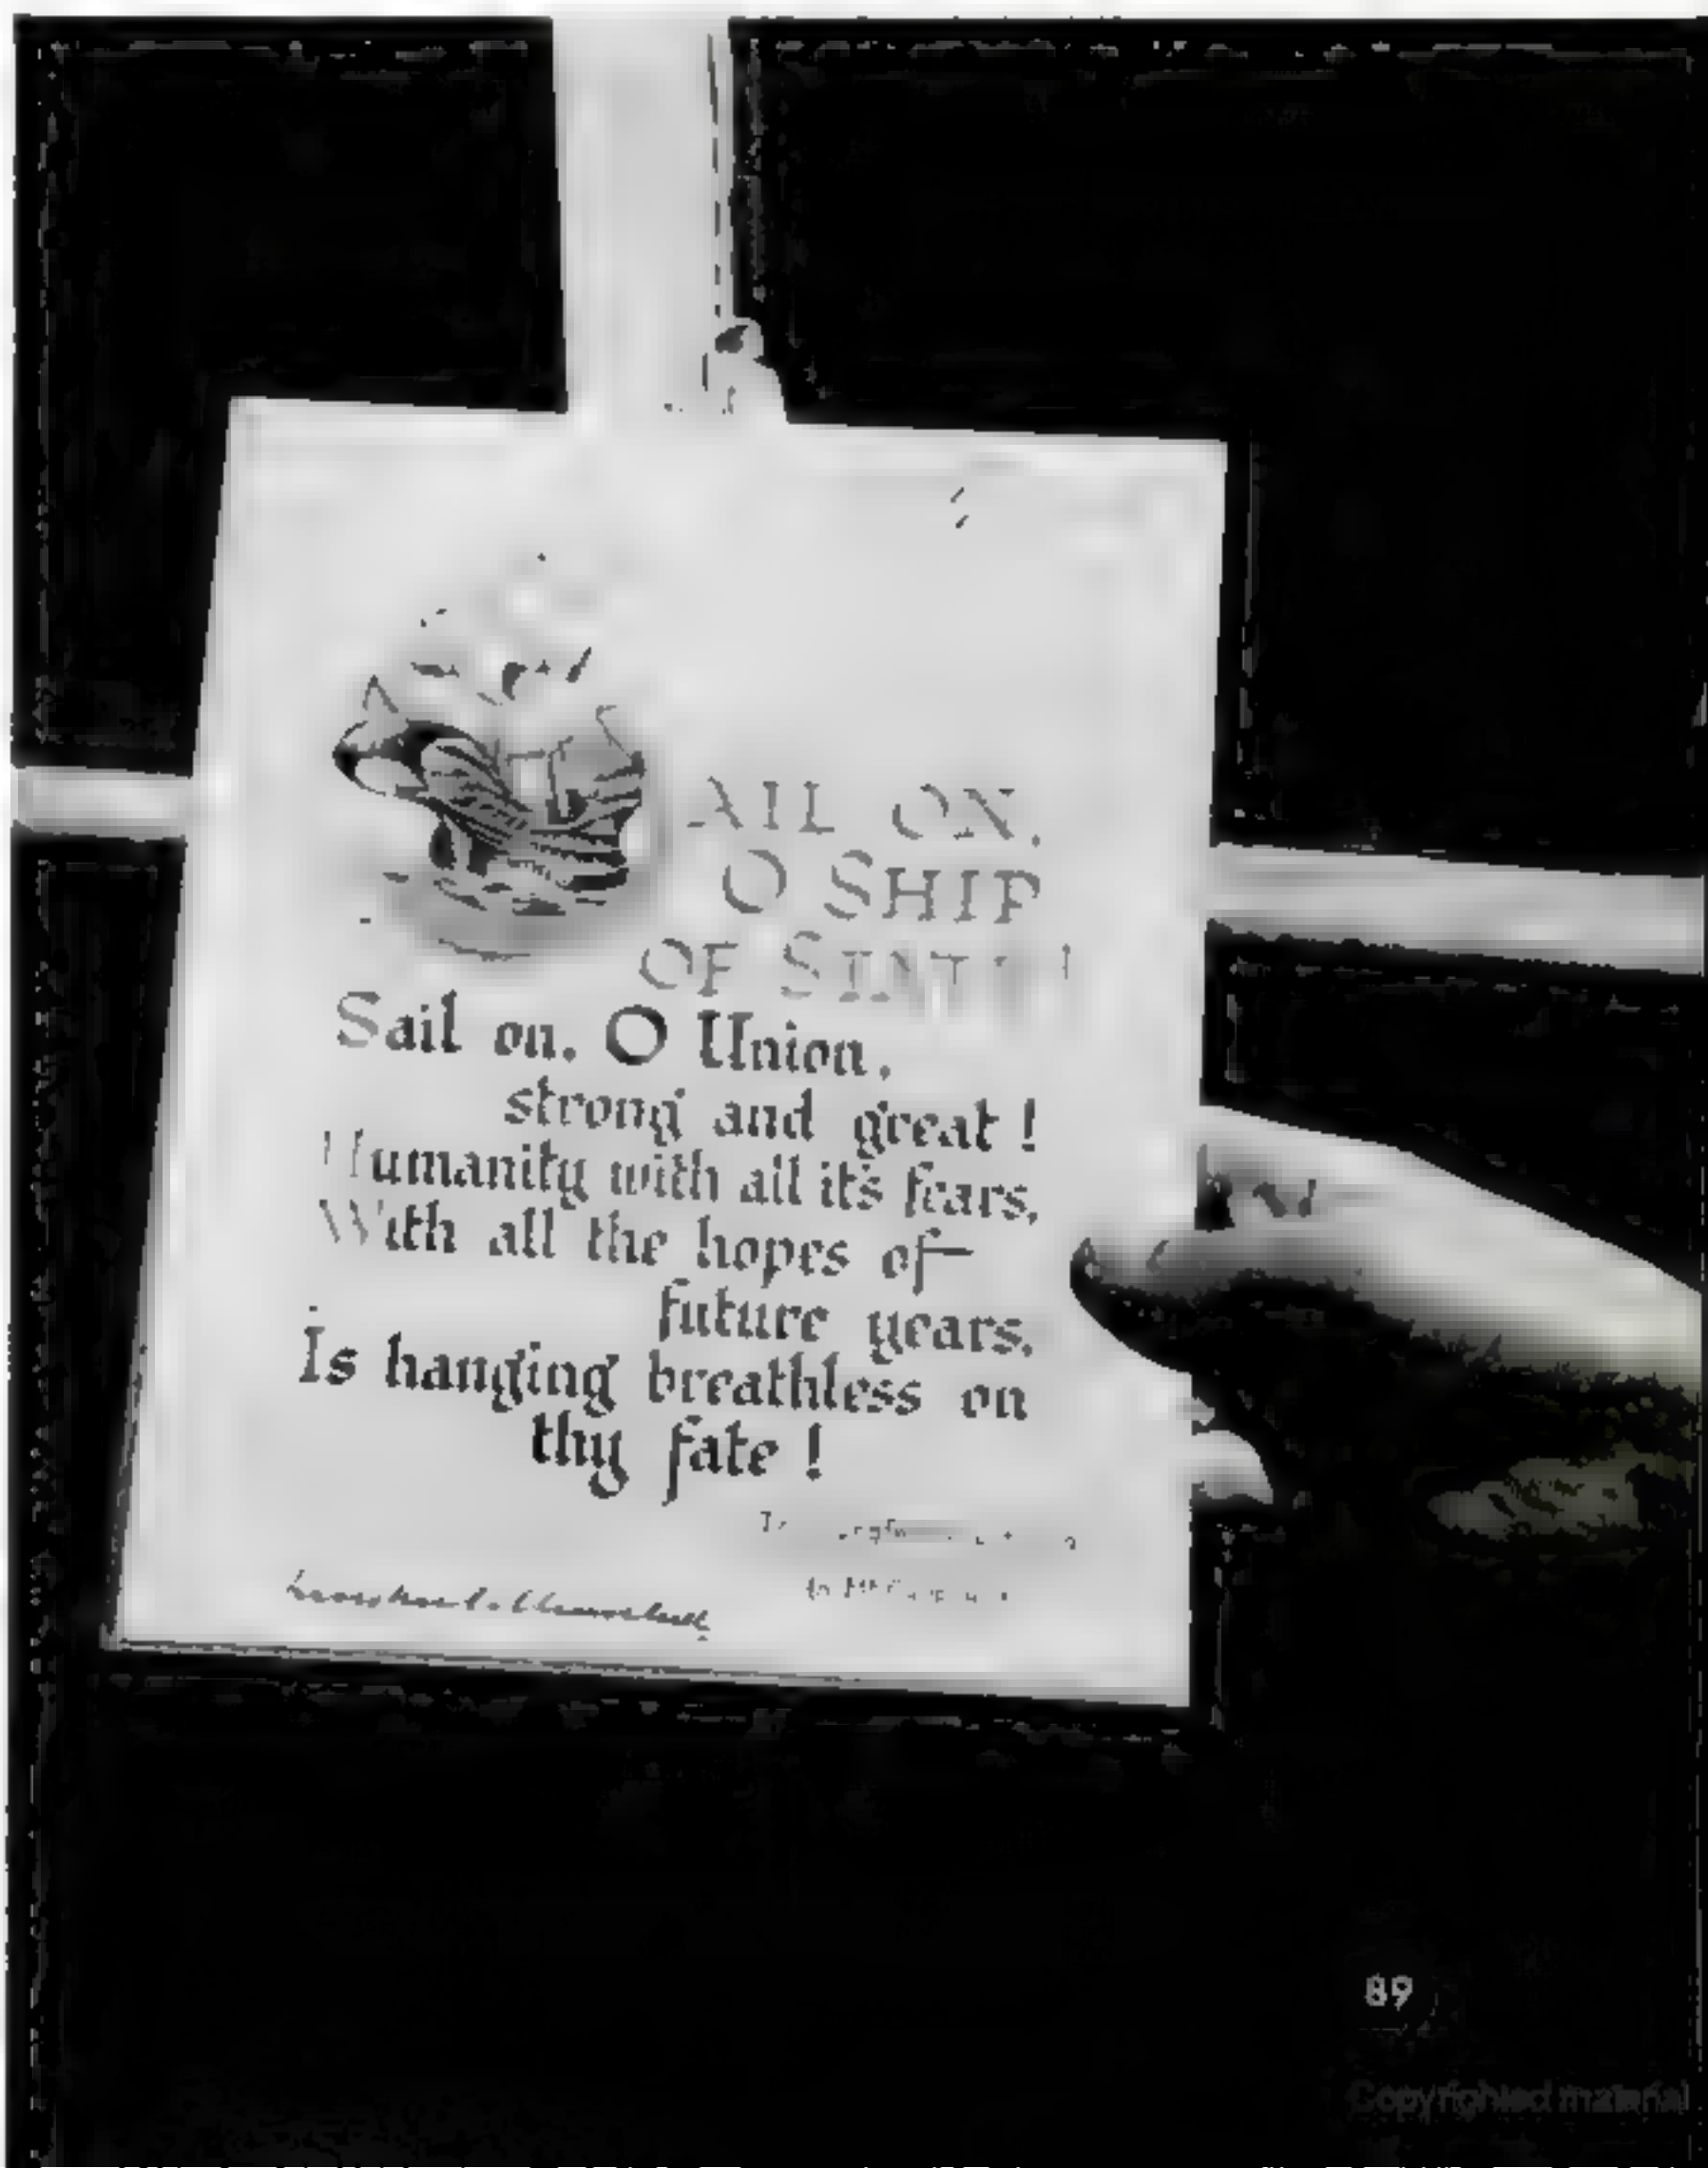 AIL ON,
O SHIP
OF STATE!
Sail on, O Union,
strong and great!
Humanity with all its fears,
With all the hopes of—
future years,
Is hanging breathless on
thy fate!
89
Copyrighted material